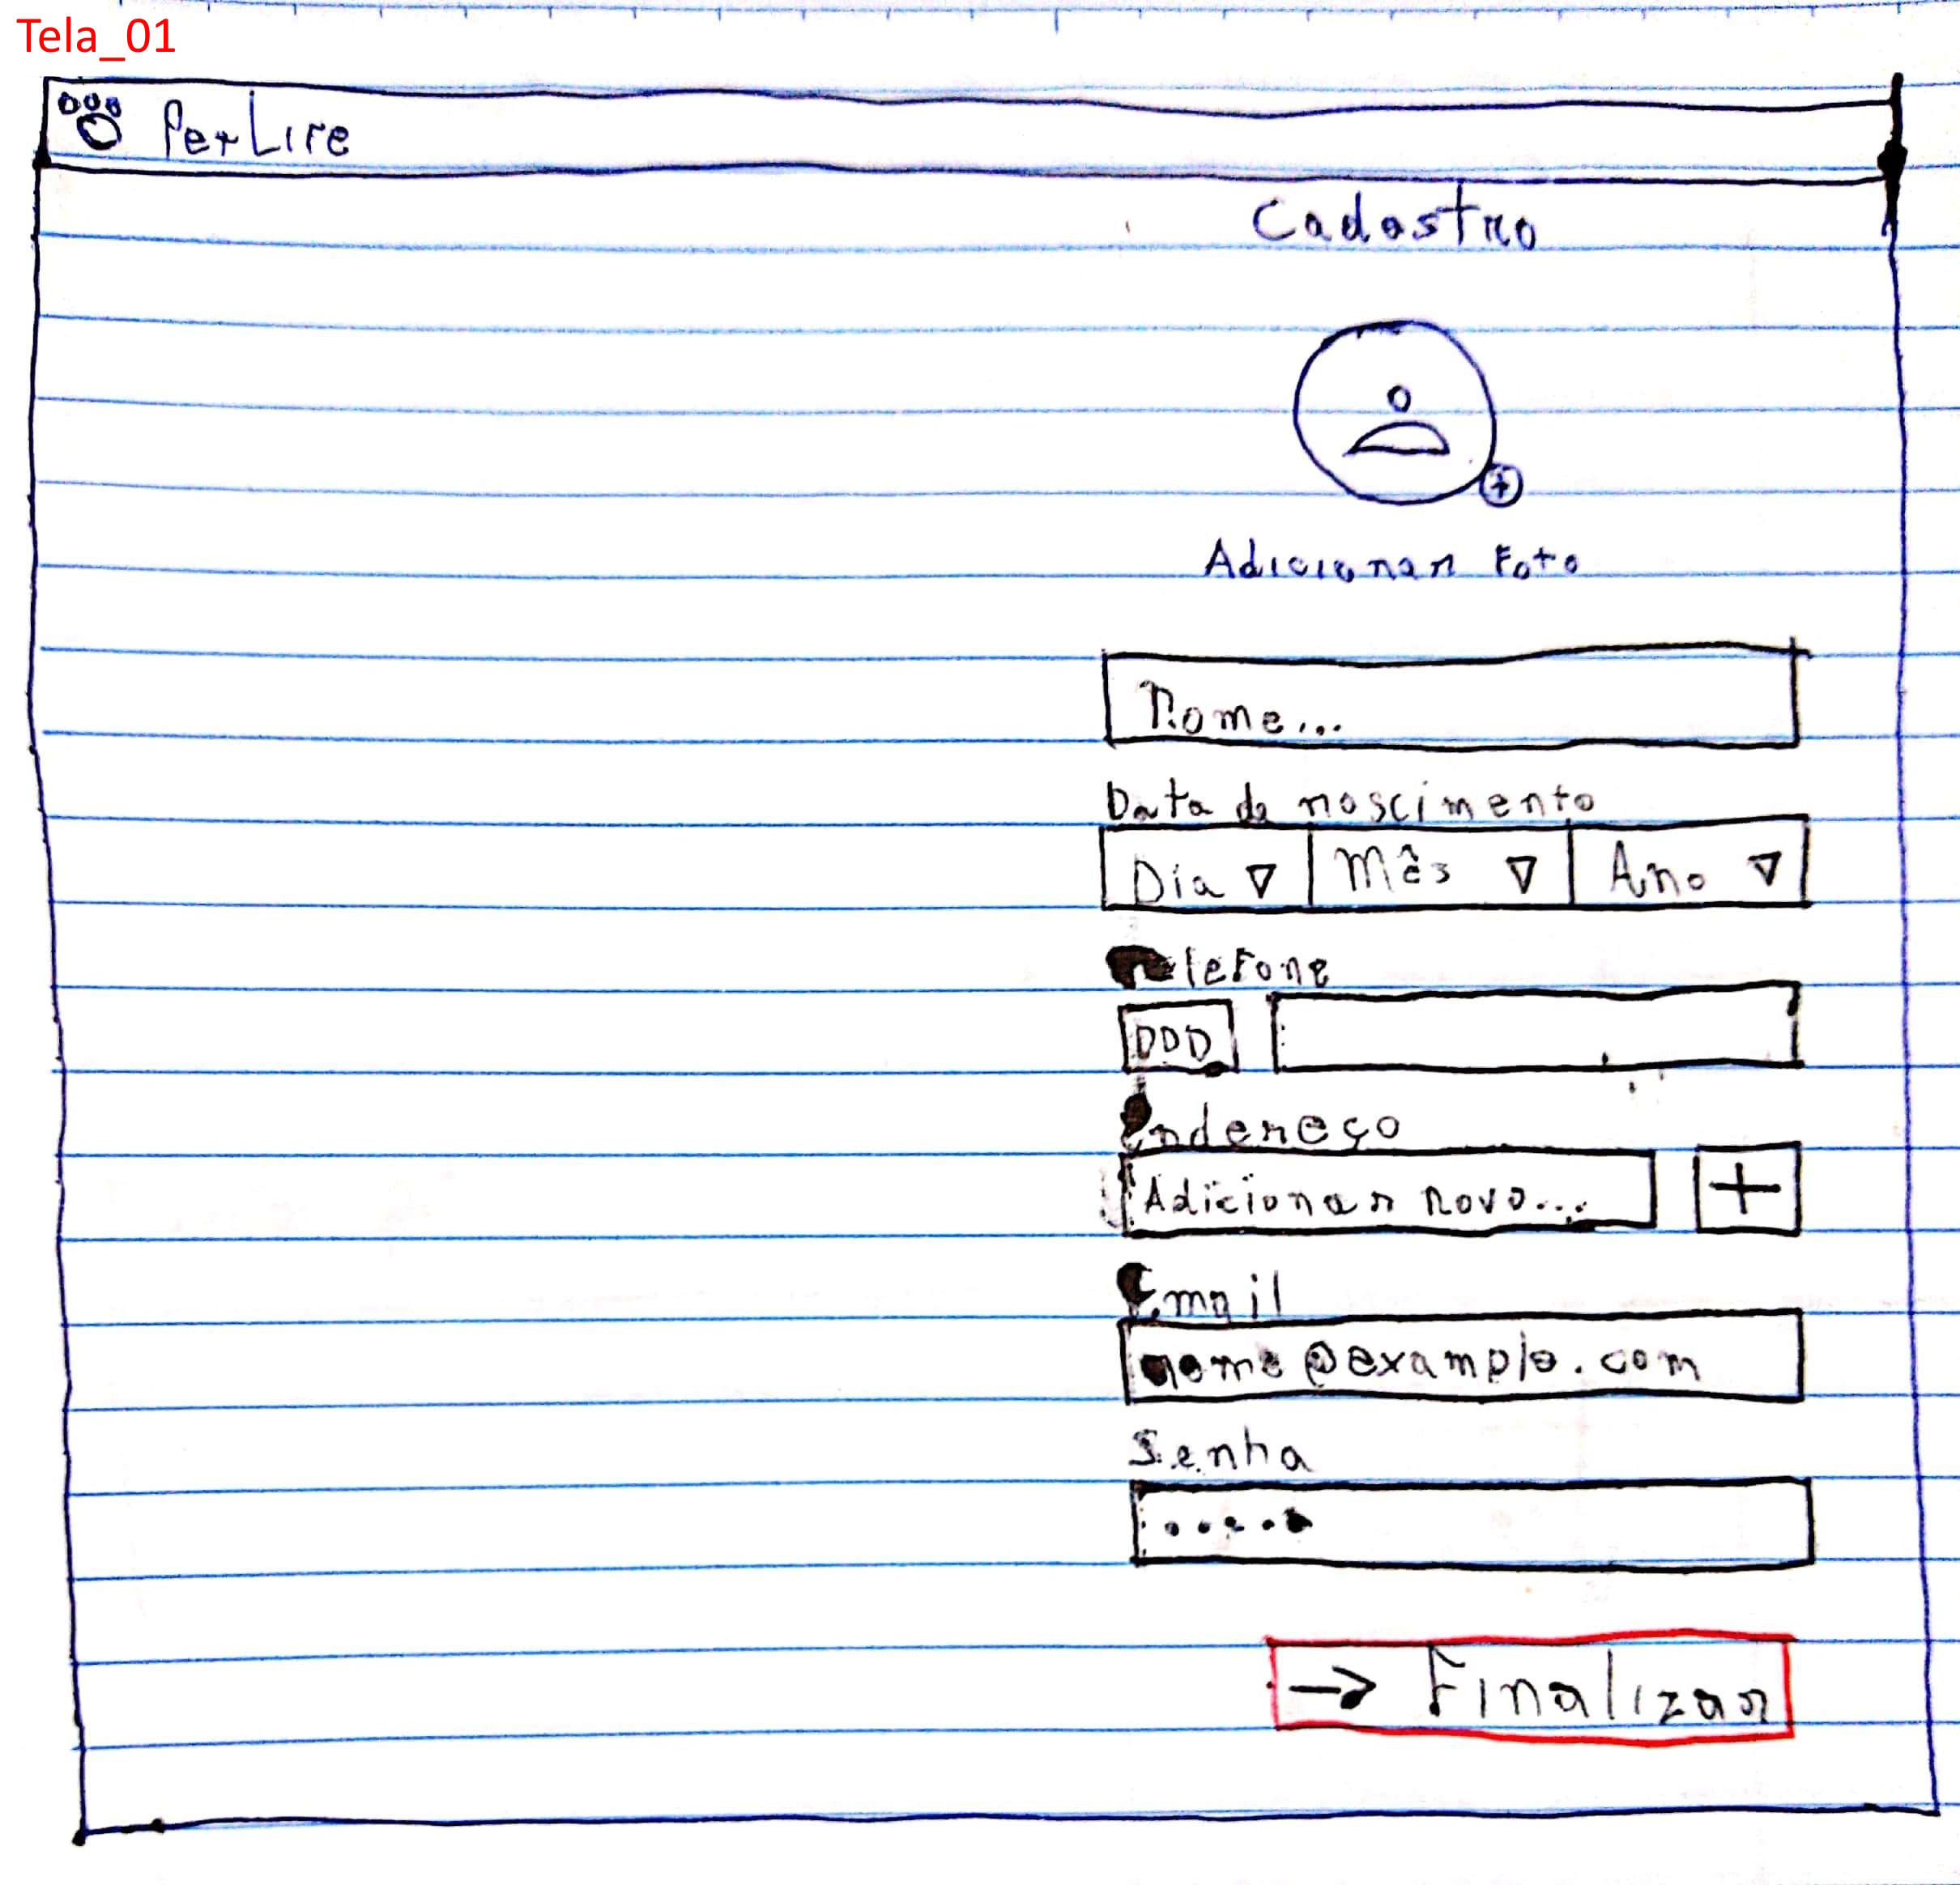 Tela_01
PetLife
Cadastro
Adicionar Foto
Nome...
Data de nascimento
Dia Mês Ano
Telefone
DDD
Endereço
Adicionar novo...
+
Email
nome@example.com
Senha
.....
→ Finalizar